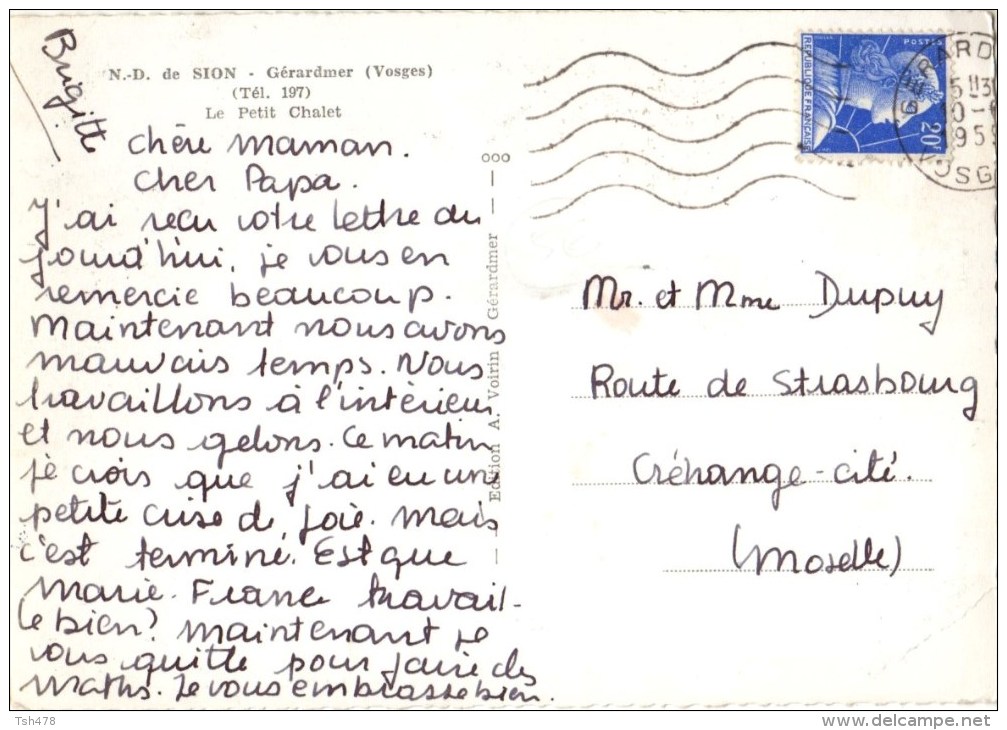 Brigitte
N.-D. de SION - Gérardmer (Vosges)
(Tél. 197)
Le Petit Chalet
chère maman.
cher Papa.
J'ai reçu votre lettre au
jourd'hui, je vous en
remercie beaucoup.
maintenant nous avons
mauvais temps. Nous
travaillons à l'intérieur
et nous gelons. Ce matin
je crois que j'ai eu une
petite crise de foie. mais
c'est terminé. Est que
Marie-France travail-
le bien? maintenant je
vous quitte pour faire des
maths. Je vous embrasse bien.
Edition A. Voirin Gérardmer
REPUBLIQUE FRANÇAISE
POSTES
20F
1959
VOSG
Mr. et Mme Dupuy
Route de Strasbourg
Créhange-cité.
(Moselle)
Tsh478
www.delcampe.net